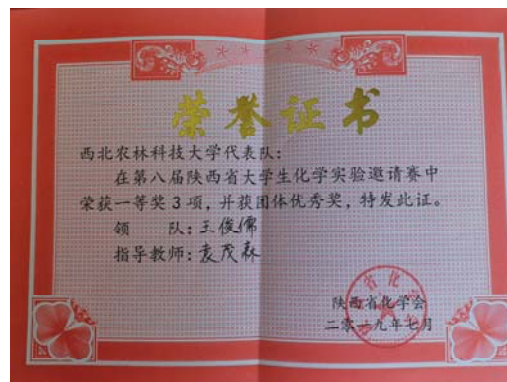 荣誉证书
西北农林科技大学代表队：
在第八届陕西省大学生化学实验邀请赛中
荣获一等奖3项，并获团体优秀奖，特发此证。
领 队：王俊儒
指导教师：袁茂森
陕西省化学会
二零一九年七月